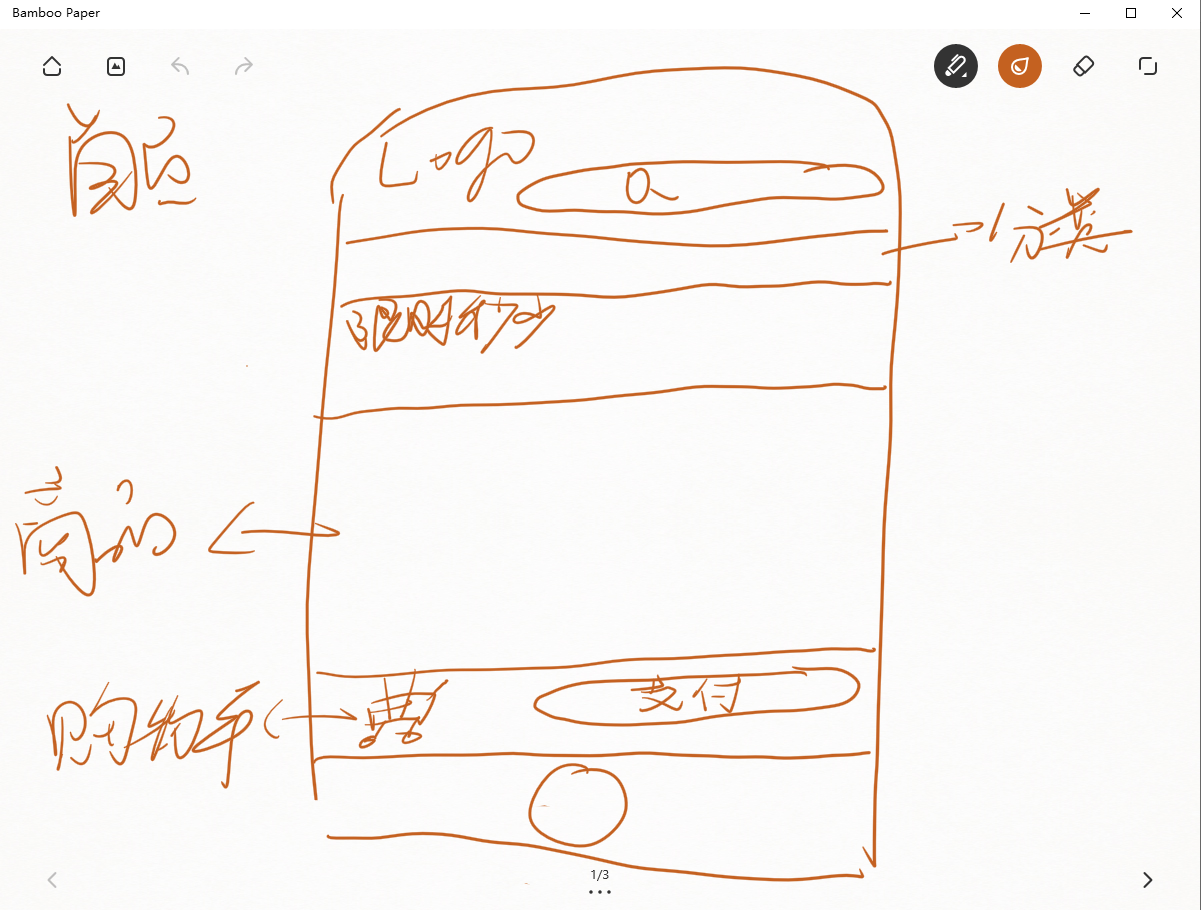 Bamboo Paper
首页
Logo
分类
限时秒沙
商品
购物车
支付
1/3